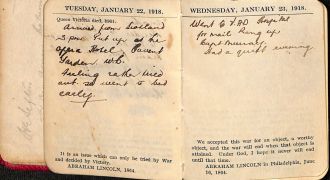 TUESDAY, JANUARY 22, 1918.
Queen Victoria died, 1901.
Arrived from Scotland
3 pm. Put up at the
opera Hotel, Covent
Garden W.C.
Feeling rather tired
out so went to bed
early.
It is an issue which can only be tried by War
and decided by Victory.
ABRAHAM LINCOLN, 1864.
WEDNESDAY, JANUARY 23, 1918.
Went Hospital
for mail Rang up
Capt Murray
Had a quiet evening.
We accepted this war for an object, a worthy
object, and the war will end when that object is
attained. Under God, I hope it never will end
until that time.
ABRAHAM LINCOLN in Philadelphia, June
16, 1864.